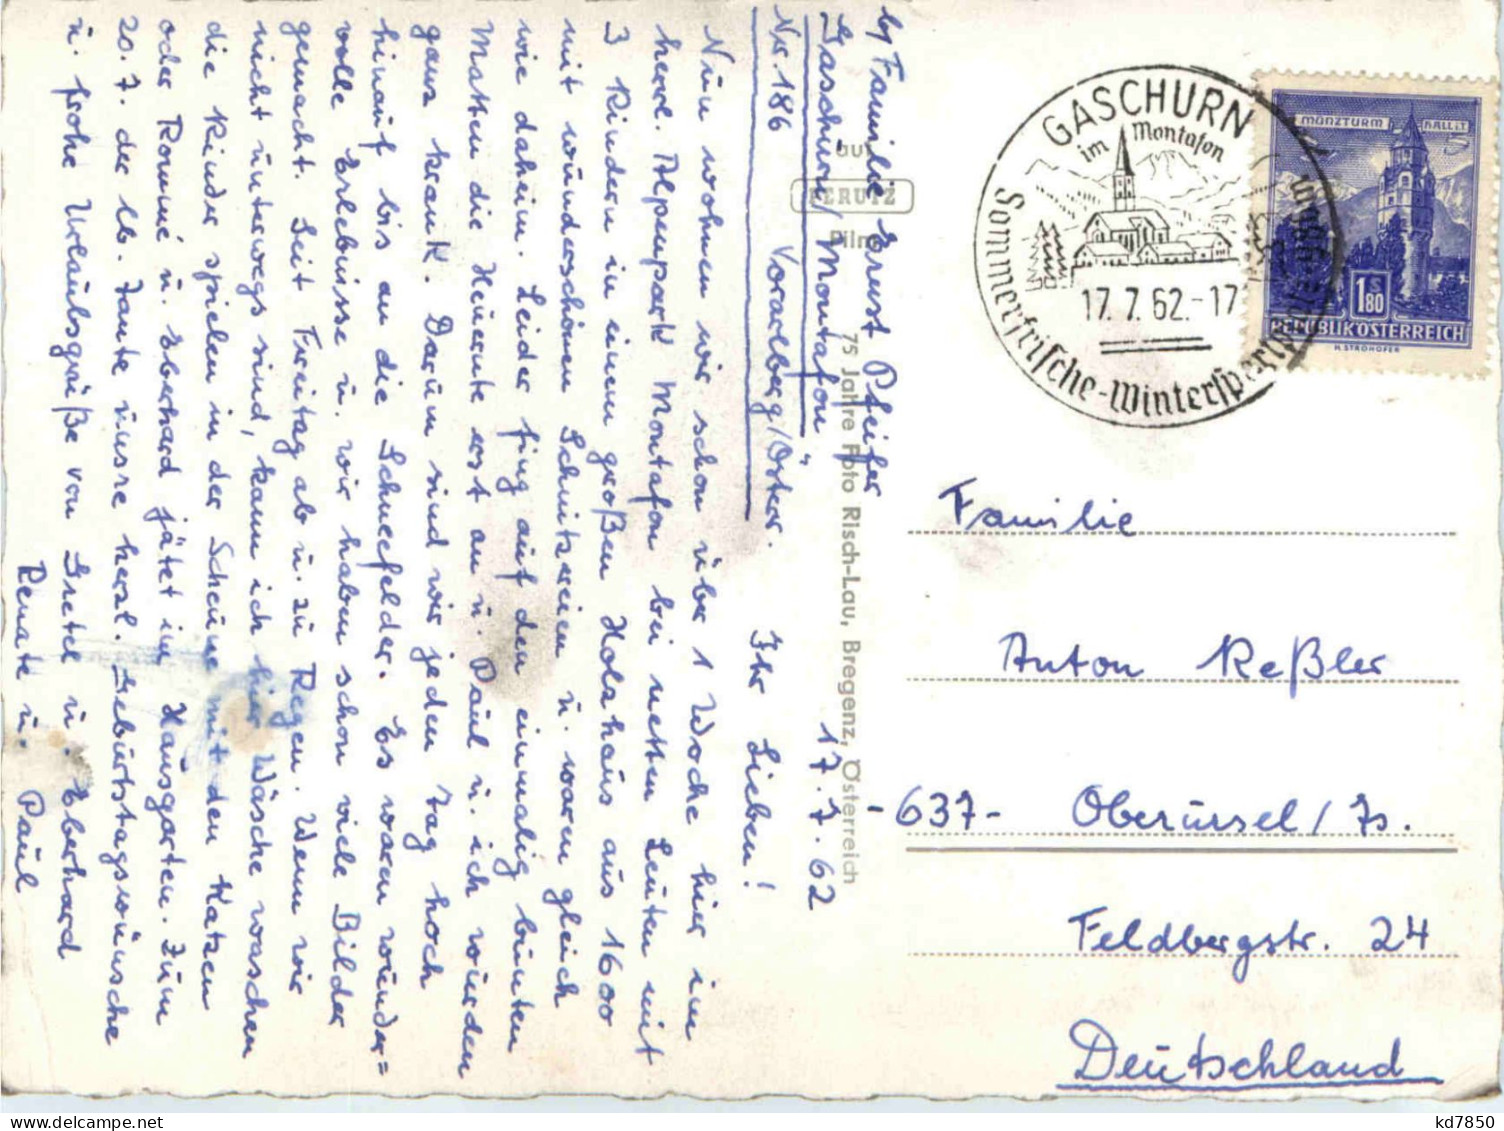 b/ Familie Ernst Pfeifer
Gaschurn/Montafon 17.7.62
Nr. 186 Vorarlberg/Österr.
Ihr Lieben!
Nun wohnen wir schon über 1 Woche hier im
herrl. Alpenpark Montafon bei netten Leuten mit
3 Kindern in einem großen Holzhaus aus 1600
mit wunderschönen Schnitzreien u. waren gleich
wie daheim. Leider fing auf den einmalig bunten
Matten die Heuernte erst an u. Paul u. ich wurden
ganz krank. Darum sind wir jeden Tag hoch
hinauf bis an die Schneefelder. Es waren wunder=
volle Erlebnisse u. wir haben schon viele Bilder
gemacht. Seit Freitag ab u. zu Regen. Wenn wir
nicht unterwegs sind, kann ich hier Wäsche waschen
die Kinder spielen in der Scheune mit den Katzen
oder Rommé u. Eberhard jätet im Hausgarten. Zum
20.7. der lb. Tante unsre herzl. Geburtstagswünsche
u. frohe Urlaubsgrüße von Gretel u. Eberhard
Renate u. Paul
auf
PERUTZ
Film
75 Jahre Foto Risch-Lau, Bregenz, Österreich
GASCHURN
im Montafon
17. 7. 62.-17
Sommerfrische-Wintersport
MÜNZTURM HALL i.T.
S
1.80
REPUBLIK ÖSTERREICH
H. STROHOFER
Familie
Anton Keßler
-637- Oberursel/Ts.
Feldbergstr. 24
Deutschland
kd7850